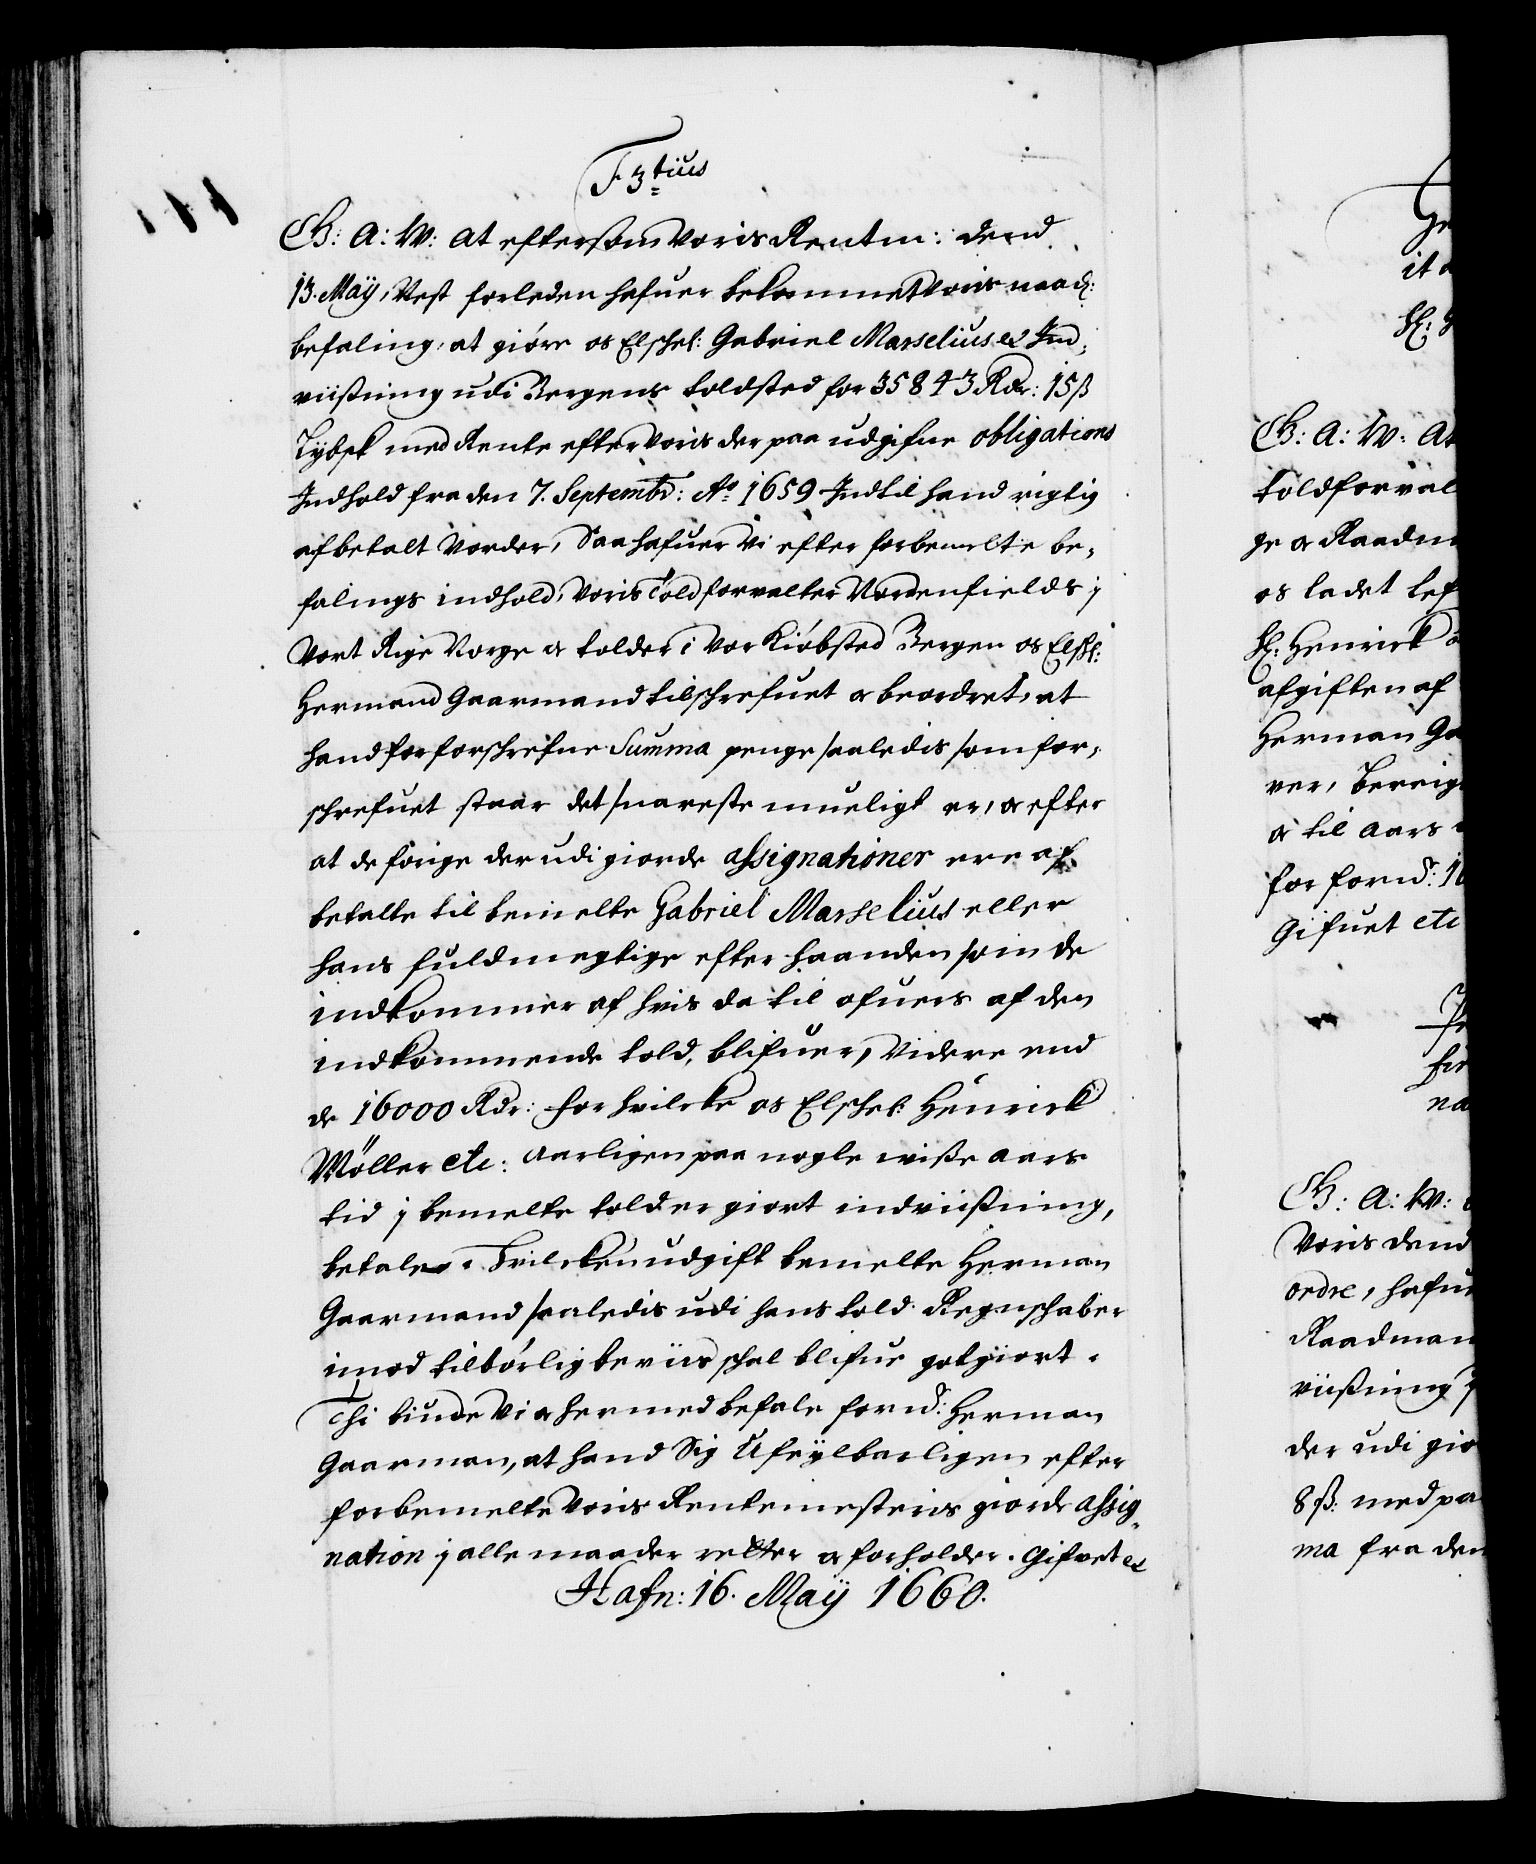 F 3tius
G: A: W: at eftersom Voris Rentm: dend
13. Maÿ, Nest forleden hafuer bekommet Voris naad:
befaling, at giøre os Elskel: Gabriel Marselius et Ind,
viißning udi Bergens toldsted for 35843 Rdr: 15 ß
Lybsk med Rente efter Voris der paa udgifne obligations
Indhold fra den 7. Septembr: Ao 1659 Indtil hand rigtig
afbetalt Vorder, Saa hafuer Vi efter forbemelte be,
falings indhold, Voris Toldforvalter Nordenfields j
Vort Rige Norge oc tolder i Vor Kiøbsted Bergen os Elskl:
Hermand Gaarmand tilschrefuet oc beordret, at
hand for forschrefne Summa penge saaledis som for,
schrefuet staar det snareste mueligt er, oc efter
at de forige der udi giorde assignationer ere af
betalte til bemelte Gabriel Marselius eller
hans fuldmegtige efter haanden som de
indkommer af hvis da til ofuers af den
indkommende told, blifuer, Videre end
de 16000 Rdr: for hvilcke os Elskel: Henrick
Møller etc: aarligen paa nogle wiße aars
tid j bemelte tolder giort indviißning,
betaler. Hvilcken udgift bemelte Herman
Gaarmand saaledis udi hans told Regnschaber
imod tilbørlig beviis schal blifue got giort.
Thi biude Vi oc hermed befale fornd: Herman
Gaarman, at hand Sig Ufeÿlbarligen efter
forbemelte Voris Rentemesteris giorde assig„
nation j alle maader retter oc forholder. Gifvet et
Hafn: 16. Maÿ 1660.
G: A: W: At
toldforval
ge oc Raadm
os ladet
Sl: Henrick
afgiften af
Herman Ga
ver,
oc til aars
for fornd: 16
Gifuet etc
na
G: A: W:
Voris dend
ordre, hafue
Raadman
viißning j
der udi gio
8 ß: med pa
ma fra den